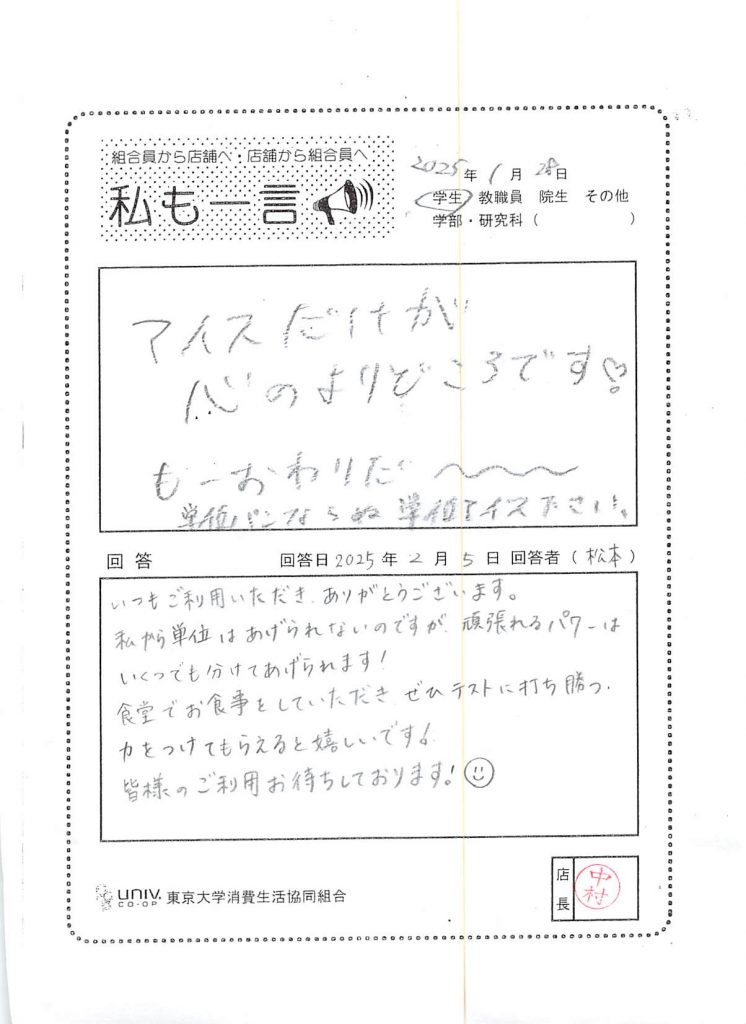 組合員から店舗へ・店舗から組合員へ
私も一言
2025年1月28日
学生 教職員 院生 その他
学部・研究科( )
アイスだけが
心のよりどころです♡
もーおわりだ〜〜〜
単位パンならぬ単位アイス下さい。
回答 回答日2025年2月5日 回答者(松本)
いつもご利用いただき、ありがとうございます。
私から単位はあげられないのですが、頑張れるパワーは
いくつでも分けてあげられます!
食堂でお食事をしていただき、ぜひテストに打ち勝つ、
力をつけてもらえると嬉しいです!
皆様のご利用お待ちしております!
UNIV.
CO-OP
東京大学消費生活協同組合
店長
中村